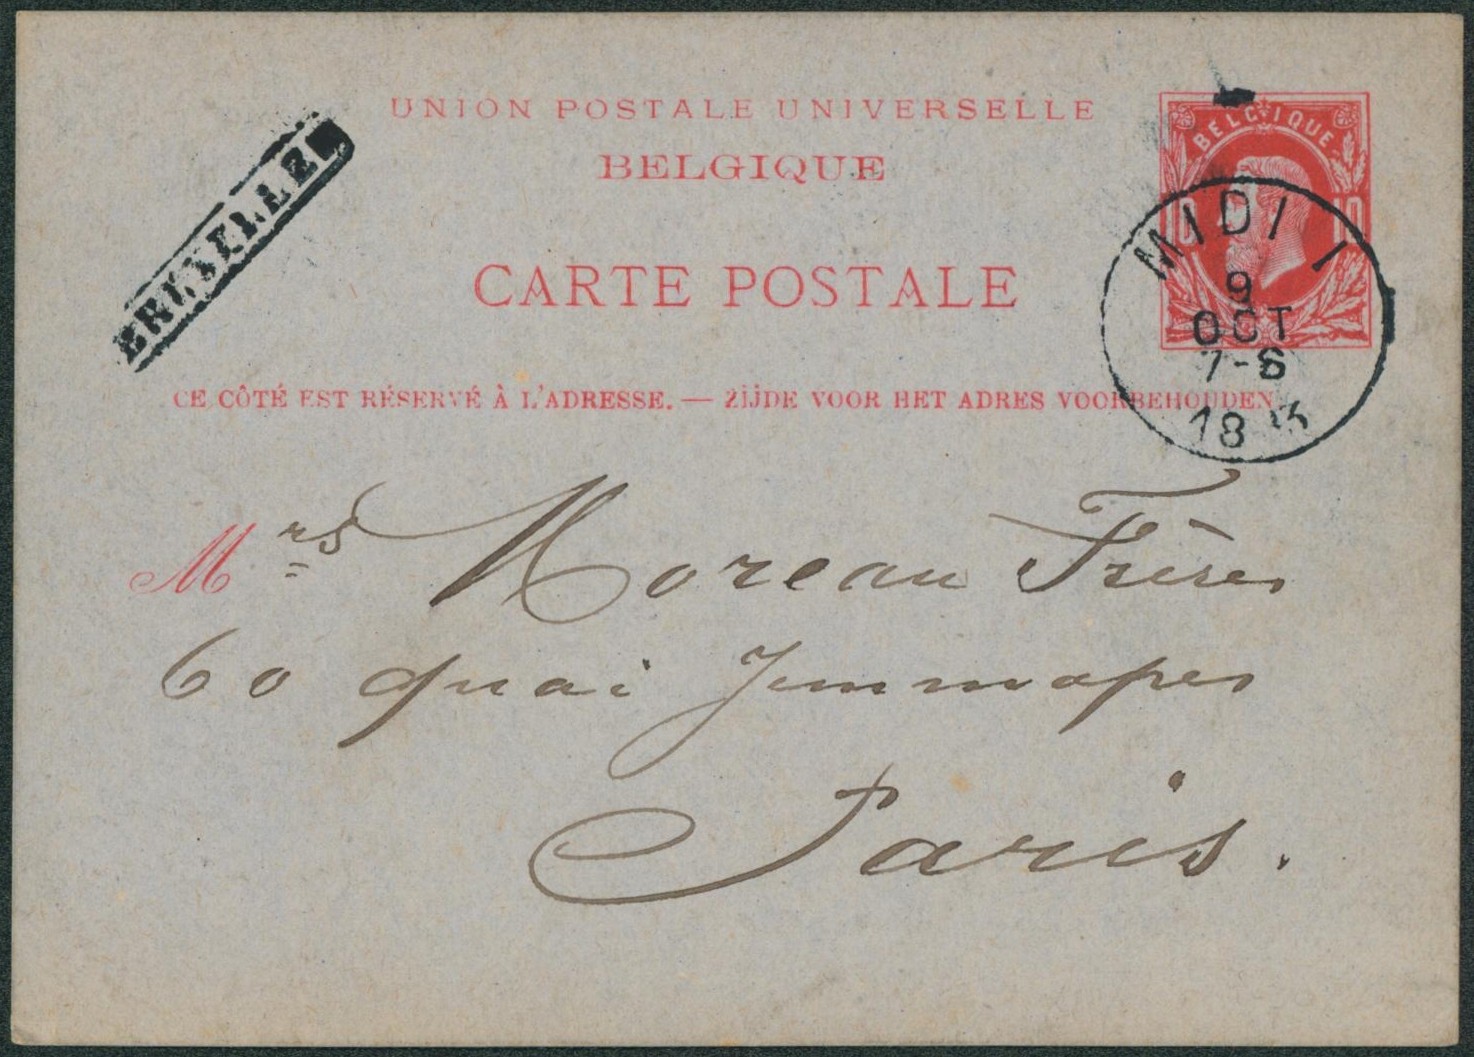 UNION POSTALE UNIVERSELLE
BELGIQUE
CARTE POSTALE
CE CÔTÉ EST RÉSERVÉ À L'ADRESSE. — ZIJDE VOOR HET ADRES VOORBEHOUDEN
BELGIQUE
10 10
MIDI 1
9
OCT
7-8
18 3
BRUXELLES
Mrs Moreau Frères
60 quai Jemmapes
Paris.